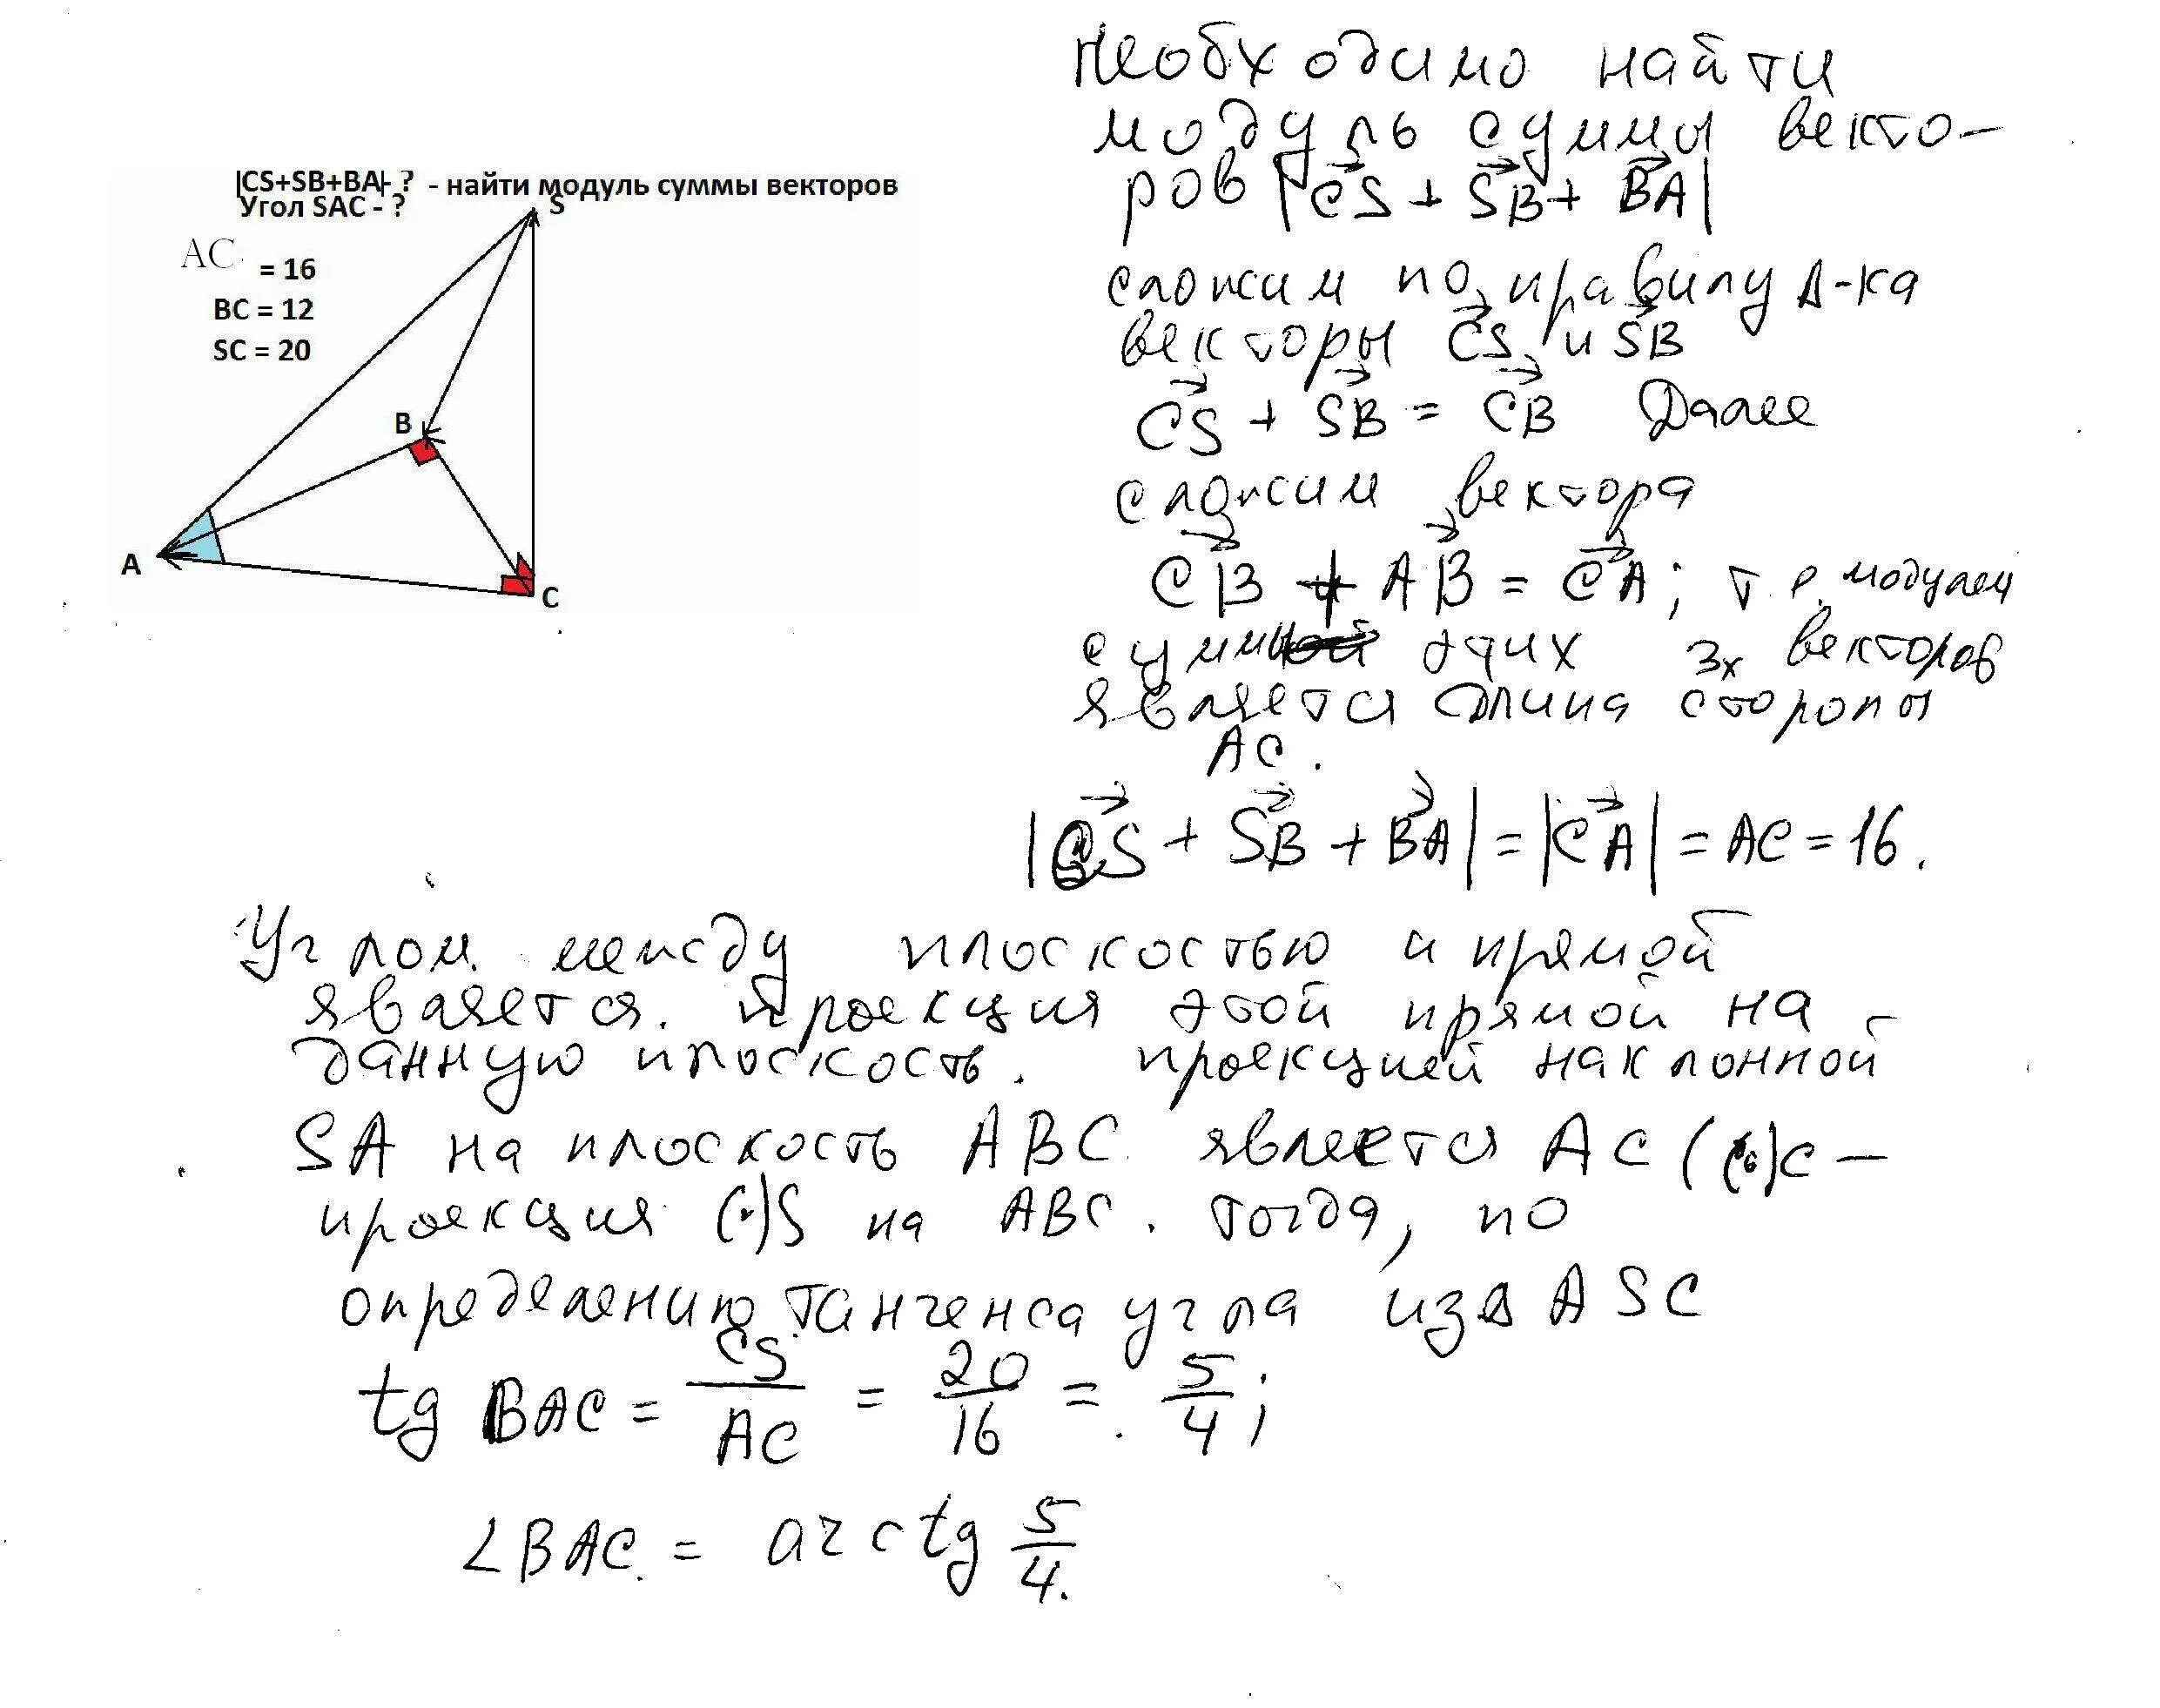 |CS+SB+BA|- ? - найти модуль суммы векторов
Угол SAC - ?
S
AC = 16
BC = 12
SC = 20
B
A
C
Необходимо найти
модуль суммы векто-
ров |CS + SB + BA|
сложим по правилу Δ-ка
векторы CS и SB
CS + SB = CB Далее
сложим вектора
CB + AB = CA; т.е. модулем
суммы этих 3х векторов
является длина стороны
AC.
|CS + SB + BA| = |CA| = AC = 16.
Углом между плоскостью и прямой
является проекция этой прямой на
данную плоскость. проекцией наклонной
SA на плоскость ABC является AC ( (•)C –
проекция (•)S на ABC. тогда, по
определению тангенса угла из Δ ASC
tg BAC = CS/AC = 20/16 = 5/4;
∠BAC = arctg 5/4.